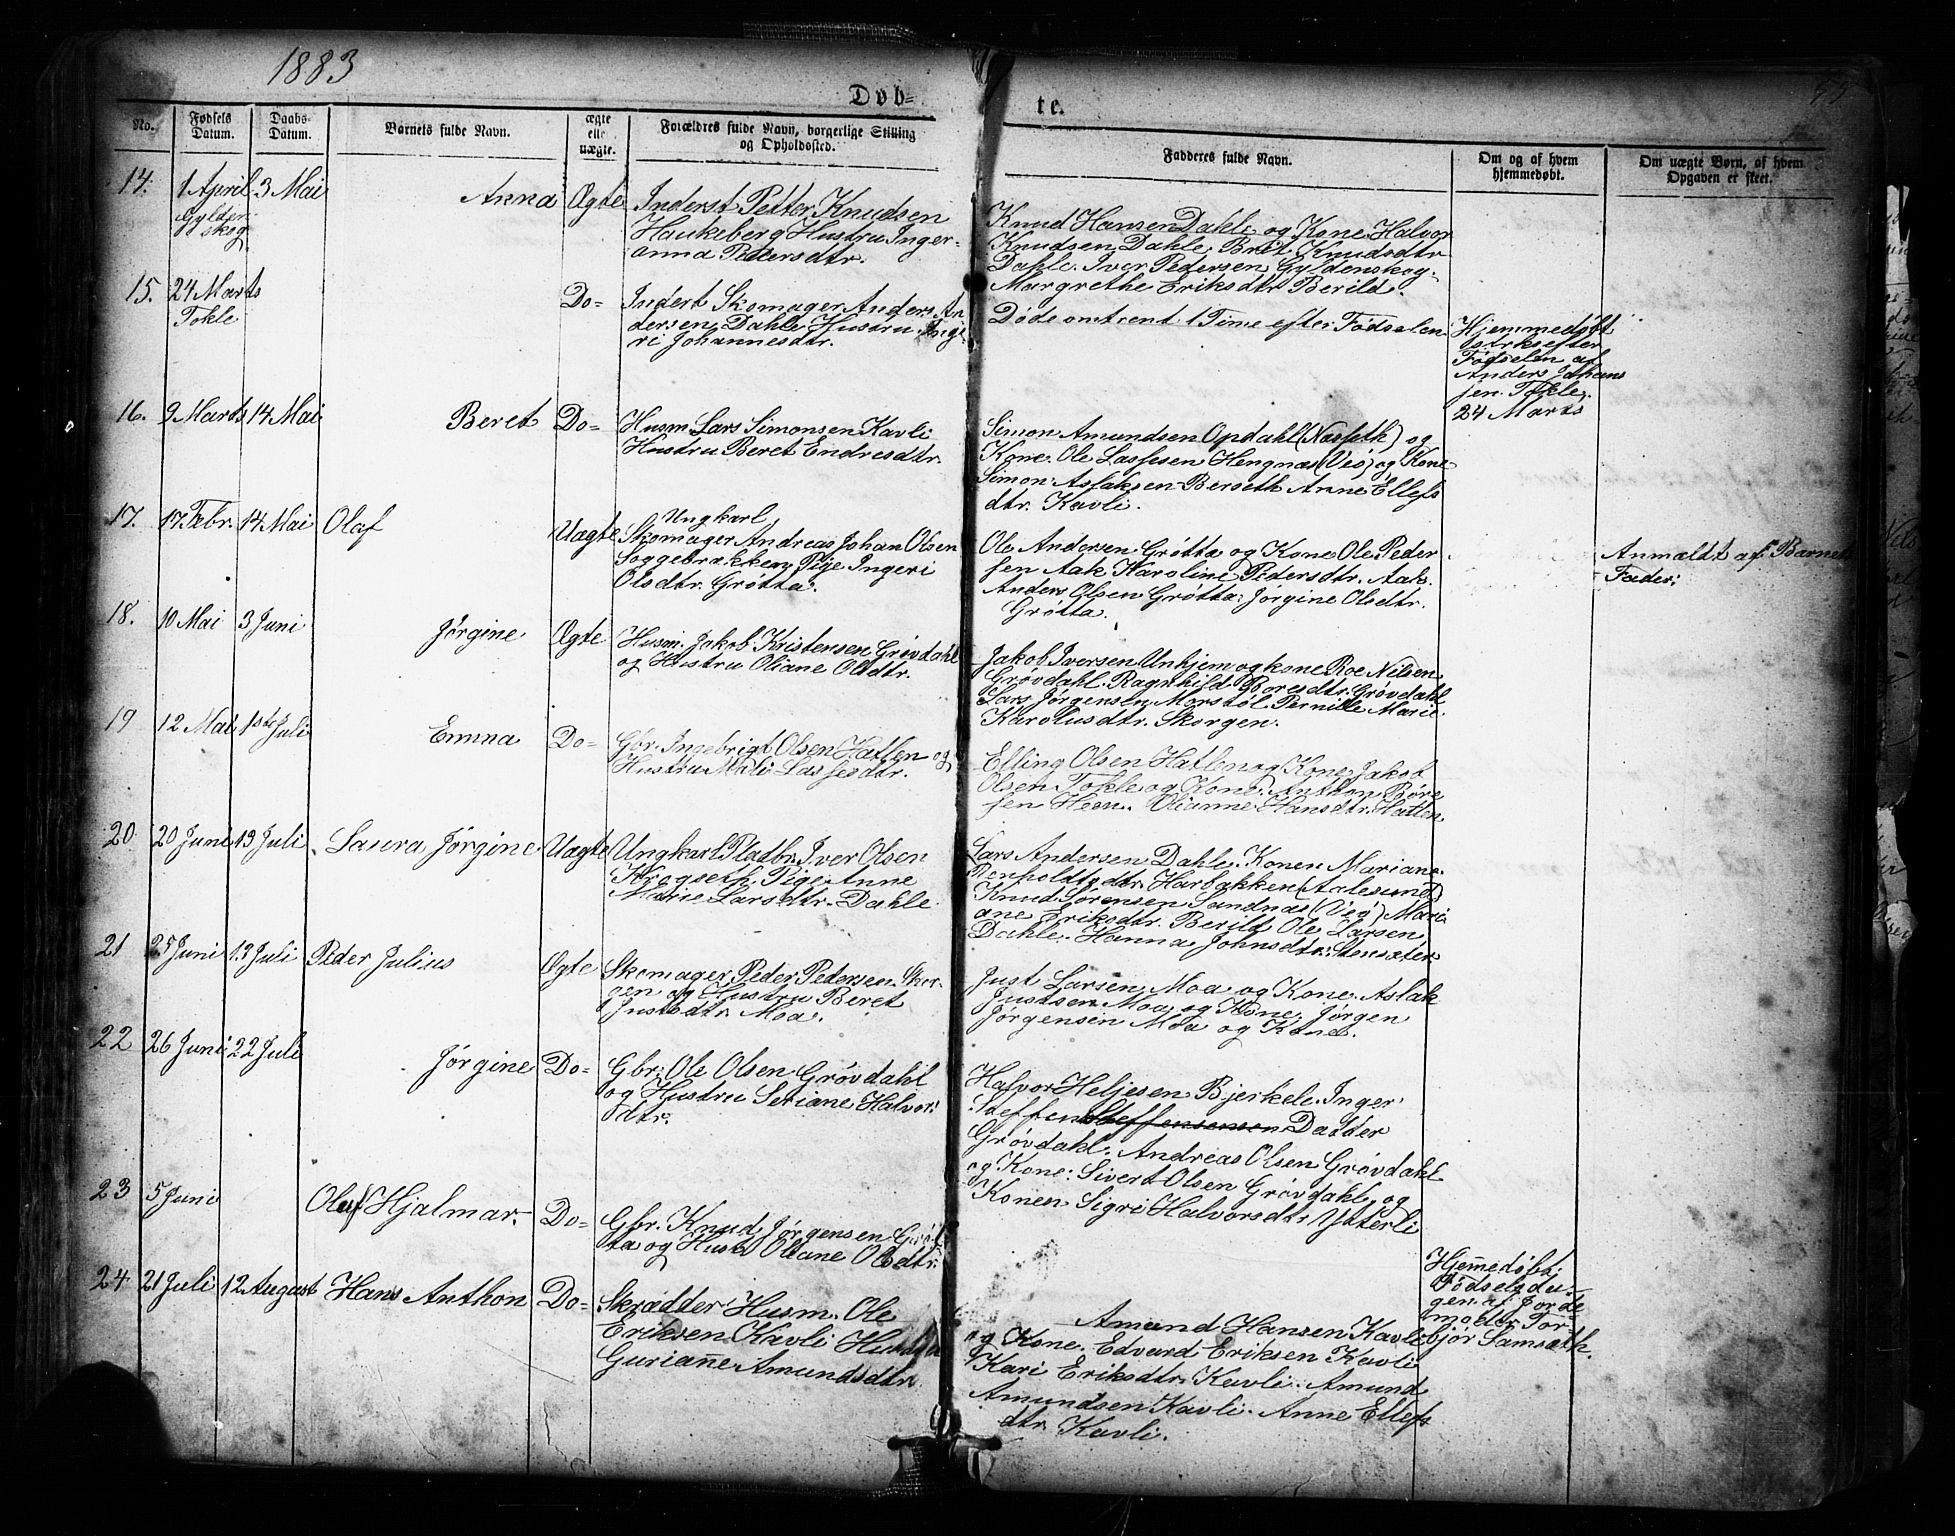 1883
95
Døb-
te.
No.
Fødsels
Datum.
Daabs-
Datum.
Barnets fulde Navn.
ægte
elle
uægte.
Forældres fulde Navn, borgerlige Stilling
og Opholdssted.
Fadderes fulde Navn.
Om og af hvem
hjemmedøbt.
Om uægte Børn, af hvem
Opgaven er skeet.
14. 1 April 3 Mai Anna Ægte
Gylden
skog
Inderst Petter Knudsen
Haukeberg Hustru Inger-
anna Pedersdtr.
Knud Hansen Dahle og Kone. Halvor
Knudsen Dahle. Bret Knudsdtr
Dahle. Iver Pedersen Gyldenskog.
Margrethe Eriksdtr Berild.
15. 24 Marts Do-
Tokle
Indert Skomager Anders An
dersen Dahle Hustru Inge
ri Johannesdtr.
Døde omtrent 1 Time efter Fødselen
Hjemmedøbt
strks efter
Fødselen af
Anders Johan
sen Tokle.
24 Marts
16. 9 Marts 14 Mai Beret Do-
Husm Lars Simonsen Kavli
Hustru Beret Endresdtr.
Simon Amundsen Opdahl (Nesseth) og
Kone. Ole Lassesen Hengnæs (Veø) og Kone
Simon Aslaksen Berseth Anne Ellefs
dtr. Kavli.
17. 17 Febr. 14 Mai Olaf Uægte
Ungkarl
Skomager Andreas Johan Olsen
Soggebrækken, Pige Ingeri
Olsdtr. Grøtta.
Ole Andersen Grøtta og Kone Ole Peder
sen Aak Karoline Pedersdtr. Aak.
Anders Olsen Grøtta. Jørgine Olsdtr.
Grøtta.
Anmældt af Barnets
Fader.
18. 10 Mai 3 Juni Jørgine Ægte
Husm. Jakob Kristensen Grøvdahl
og Hustru Oliane Olsdtr.
Jakob Iversen Unhjem og kone Roe Nilsen
Grøvdahl. Ragnhild Boresdtr. Grøvdahl
Lars Jørgensen Morstøl Pernille Marie
Karolusdtr. Skorgen.
19 12 Mai 1ste Juli Emma Do-
Gbr. Ingebrigt Olsen Hatlen og
Hustru Mali Lassesdtr.
Elling Olsen Hatlen og Kone. Jakob
Olsen Tokle og Kone. Anthon Børe
sen Heen. Olianne Hansdtr. Hatlen
20 20 Juni 13 Juli Laura Jørgine Uægte
Ungkarl Pladbr. Iver Olsen
Krogseth Pige Anne
Marie Larsdtr. Dahle.
Lars Andersen Dahle. Konen Mariane
Renholdtsdtr. Harbakken (Aalesund)
Knud Sørensen Sandnæs (Veø) Mari
ane Eriksdtr. Berild Ole Larsen
Dahle. Hanna Johnsdtr. Stensæter
21 25 Juni 13 Juli Peder Julius Ægte
Skomager Peder Pedersen Skor-
gen og Hustru Beret
Justsdtr. Moa.
Just Larsen Moa og Kone. Aslak
Justsen Moa og Kone. Jørgen
Jørgensen Moa og Kone.
22 26 Juni 22 Juli Jørgine Do-
Gbr. Ole Olsen Grøvdahl
og Hustru Seriane Halvor
dtr.
Halvor Heljesen Bjerkeli. Inger
Steffens Steffensensen Datter
Grøvdahl. Andreas Olsen Grøvdahl
og Kone. Sivert Olsen Grøvdahl og
Konen Sigri Halvorsdtr Ytterli
23 5 Juni Oluf Hjalmar. Do-
Gbr. Knud Jørgensen Grøt
ta og Hust. Oliane Olsdtr.
Hjemmedøbt
Fødselsda-
gen af Jorde
moder Tor-
bjør Samseth.
24 21 Juli 12 August Hans Anthon Do-
Skrædder Husm. Ole
Eriksen Kavli Hustru
Gurianne Amundsdtr.
Amund Hansen Kavli
og Kone. Edvard Eriksen Kavli
Kari Eriksdtr. Kavli. Amund
Amundsen Kavli. Anne Ellefs
dtr. Kavli.